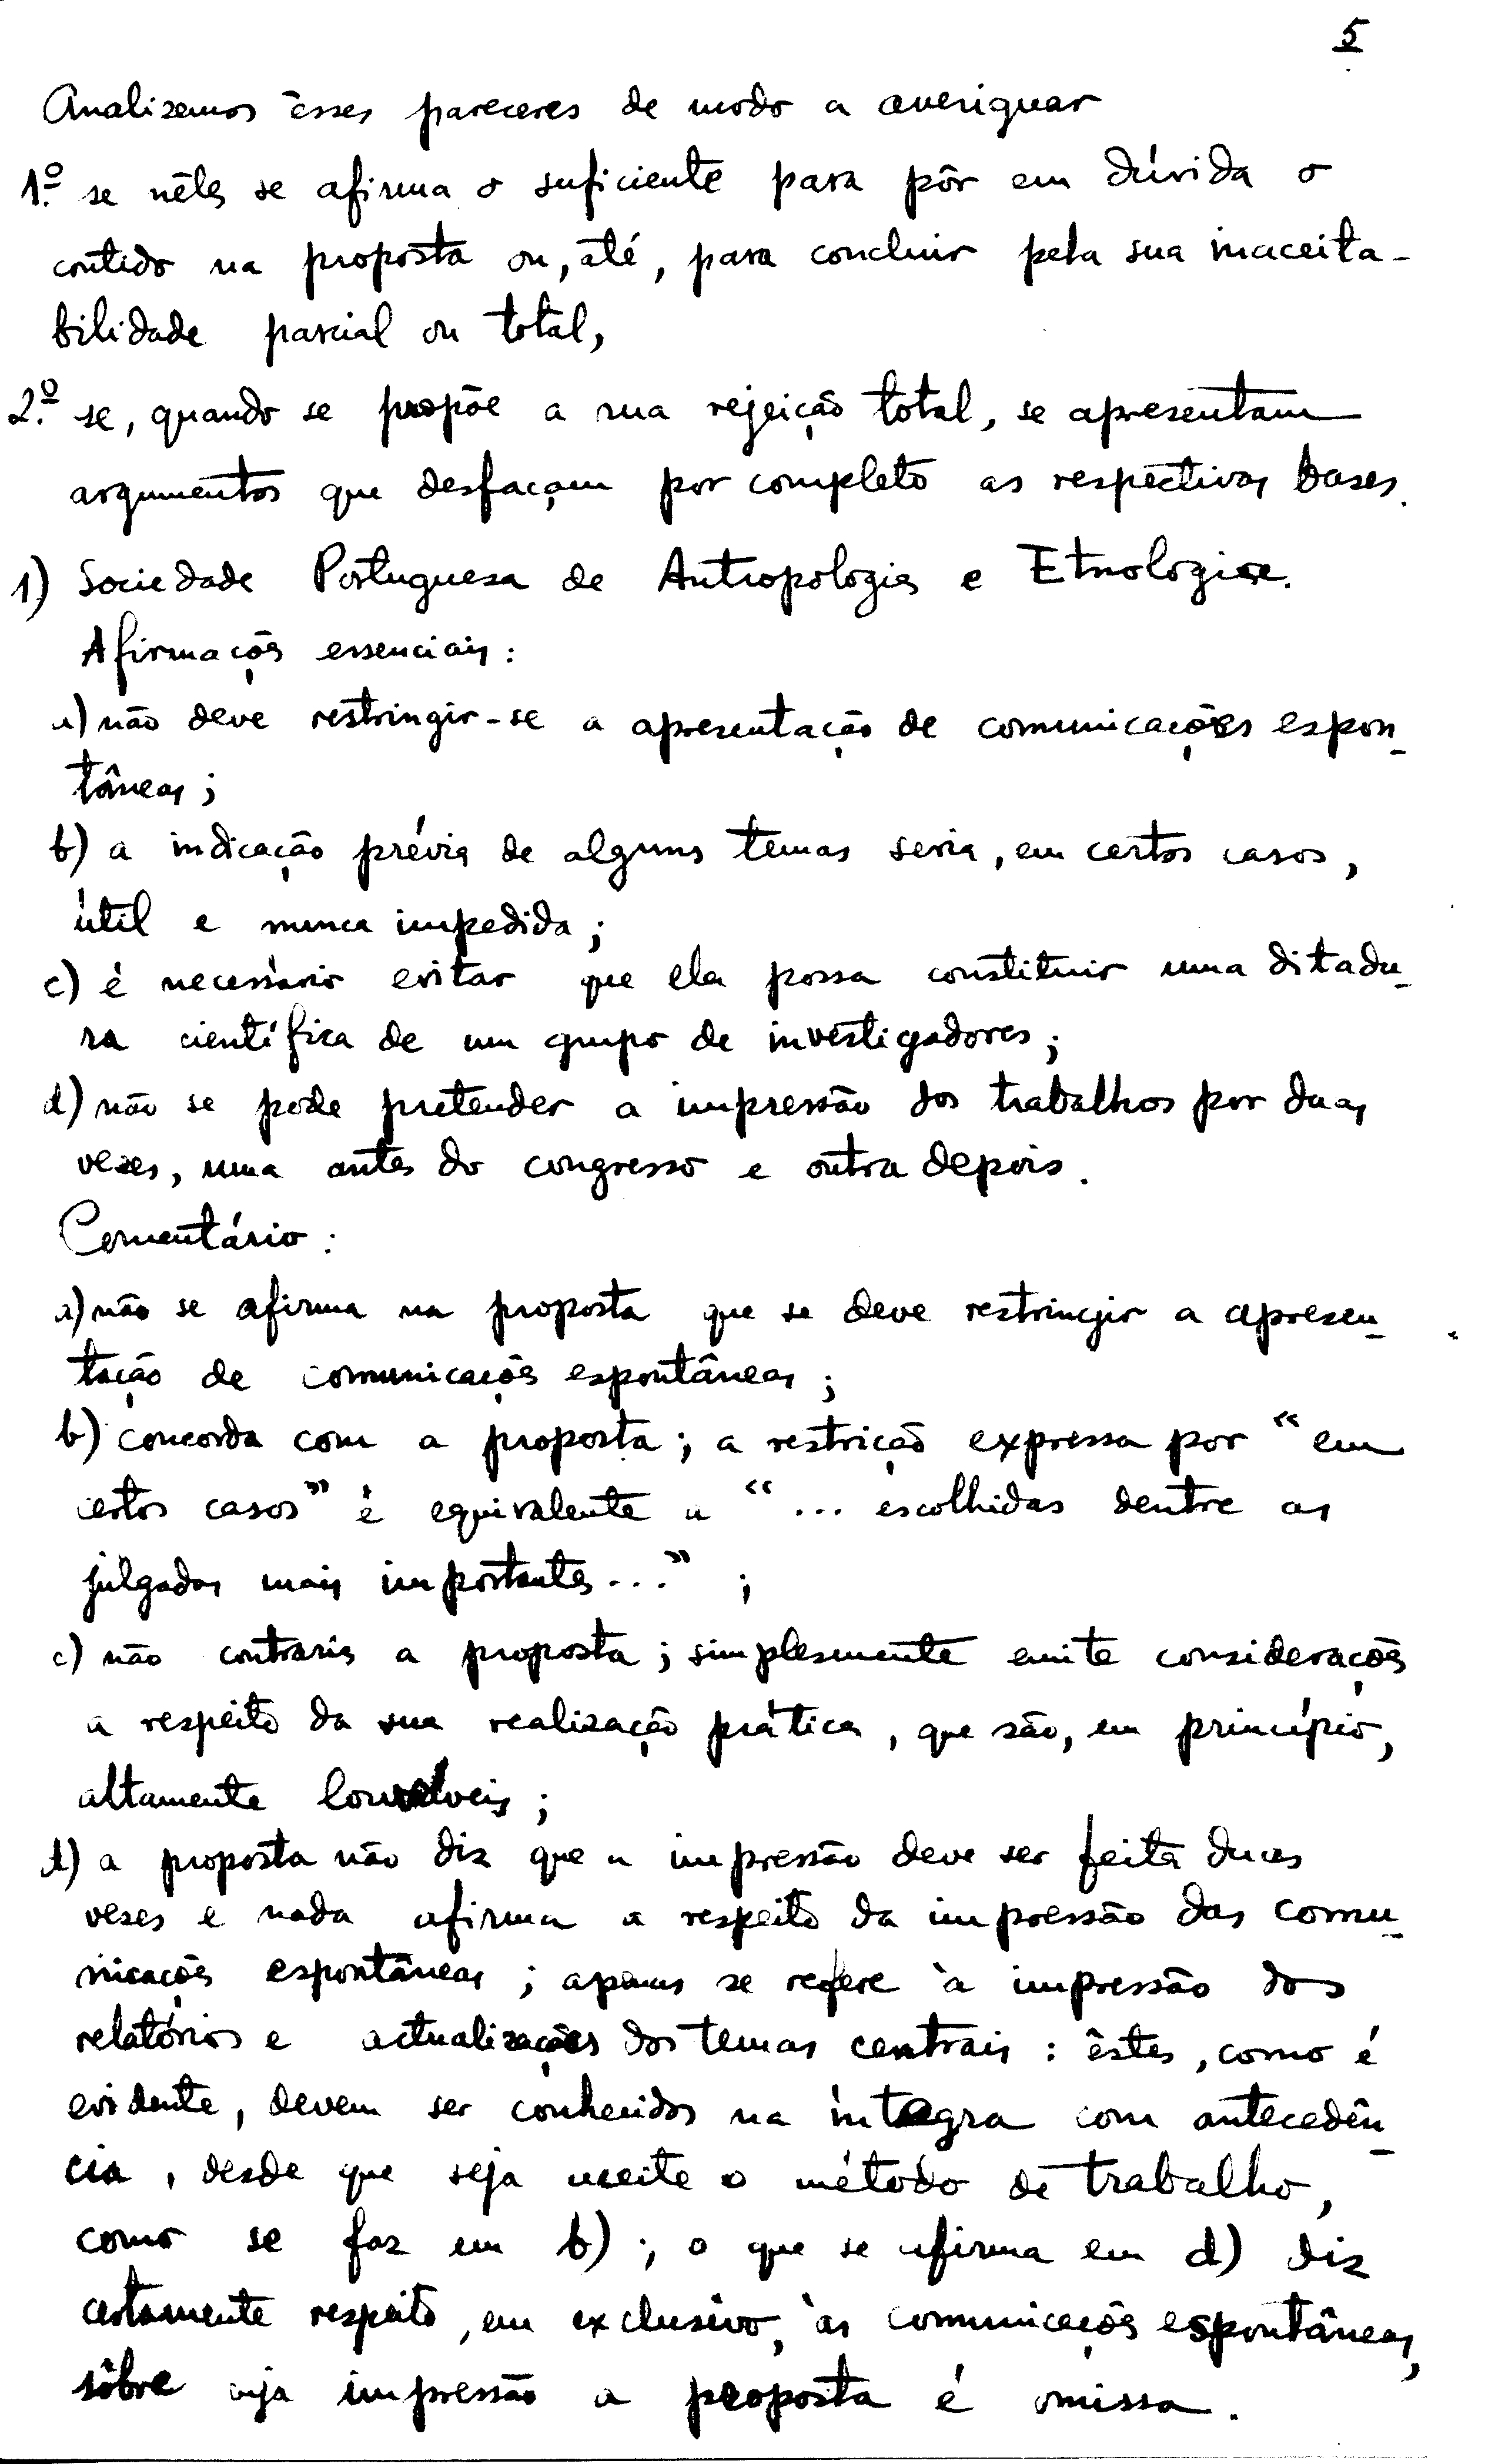 5
Analizemos êsses pareceres de modo a averiguar
1.º se nêles se afirma o suficiente para pôr em dúvida o
contido na proposta ou, até, para concluir pela sua inaceita-
bilidade parcial ou total,
2.º se, quando se propõe a sua rejeição total, se apresentam
argumentos que desfaçam por completo as respectivas bases.
1) Sociedade Portuguesa de Antropologia e Etnologia.
Afirmações essenciais:
a) não deve restringir-se a apresentação de comunicações espon-
tâneas;
b) a indicação prévia de alguns temas seria, em certos casos,
útil e nunca impedida;
c) é necessário evitar que ela possa constituir uma ditadu-
ra científica de um grupo de investigadores;
d) não se pode pretender a impressão dos trabalhos por duas
vezes, uma antes do congresso e outra depois.
Comentário:
a) não se afirma na proposta que se deve restringir a apresen-
tação de comunicações espontâneas;
b) concorda com a proposta; a restrição expressa por "em
certos casos" é equivalente a "... escolhidas dentre as
julgadas mais importantes..." ;
c) não contraria a proposta; simplesmente emite considerações
a respeito da sua realização prática, que são, em princípio,
altamente louváveis;
d) a proposta não diz que a impressão deve ser feita duas
vezes e nada afirma a respeito da impressão das comu-
nicações espontâneas; apenas se refere à impressão dos
relatórios e actualizações dos temas centrais: êstes, como é
evidente, devem ser conhecidos na íntegra com antecedên-
cia, desde que seja aceite o método de trabalho,
como se faz em b); o que se afirma em d) diz
certamente respeito, em exclusivo, às comunicações espontâneas,
sôbre cuja impressão a proposta é omissa.